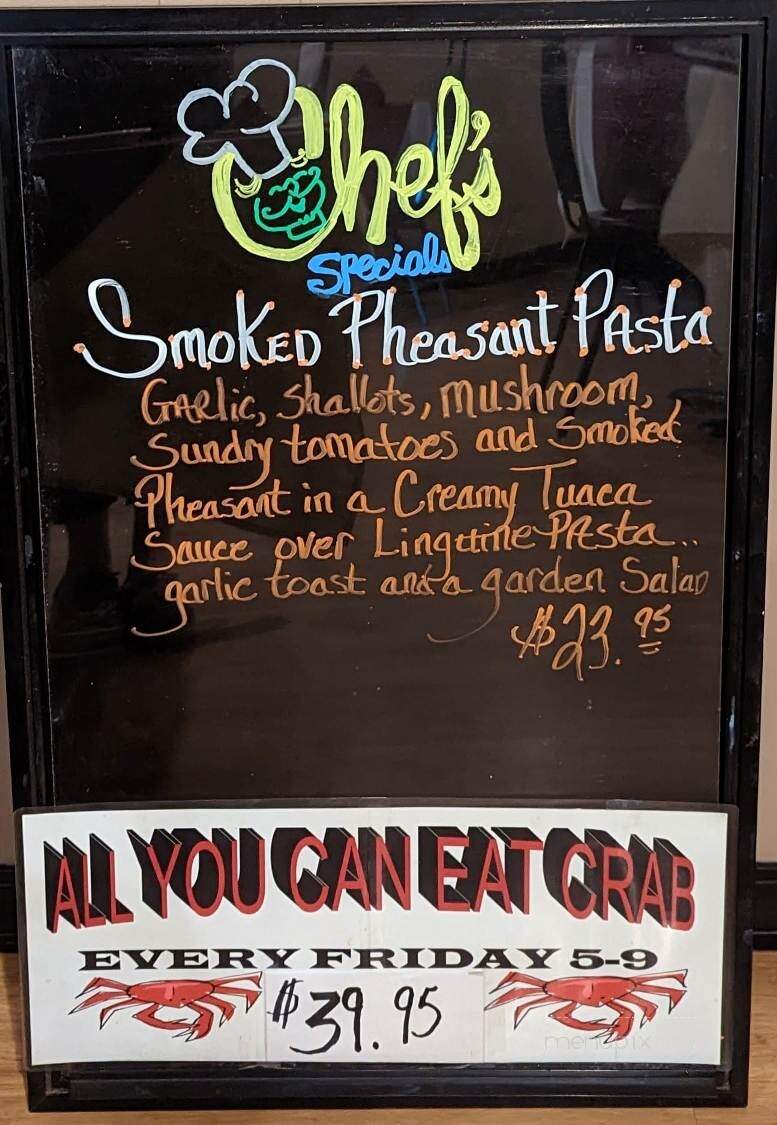 Chef's
Specials
Smoked Pheasant Pasta
Garlic, Shallots, Mushroom,
Sundry tomatoes and Smoked
Pheasant in a Creamy Tuaca
Sauce over Linguttine Pasta..
garlic toast and a garden Salad
$23.95
ALL YOU CAN EAT CRAB
EVERY FRIDAY 5-9
$39.95
menupix